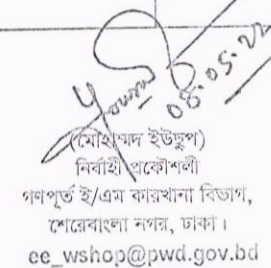 ০৪.০৫.২২
(মোহাম্মদ ইউছুপ)
নির্বাহী প্রকৌশলী
গণপূর্ত ই/এম কারখানা বিভাগ,
শেরেবাংলা নগর, ঢাকা।
ee_wshop@pwd.gov.bd